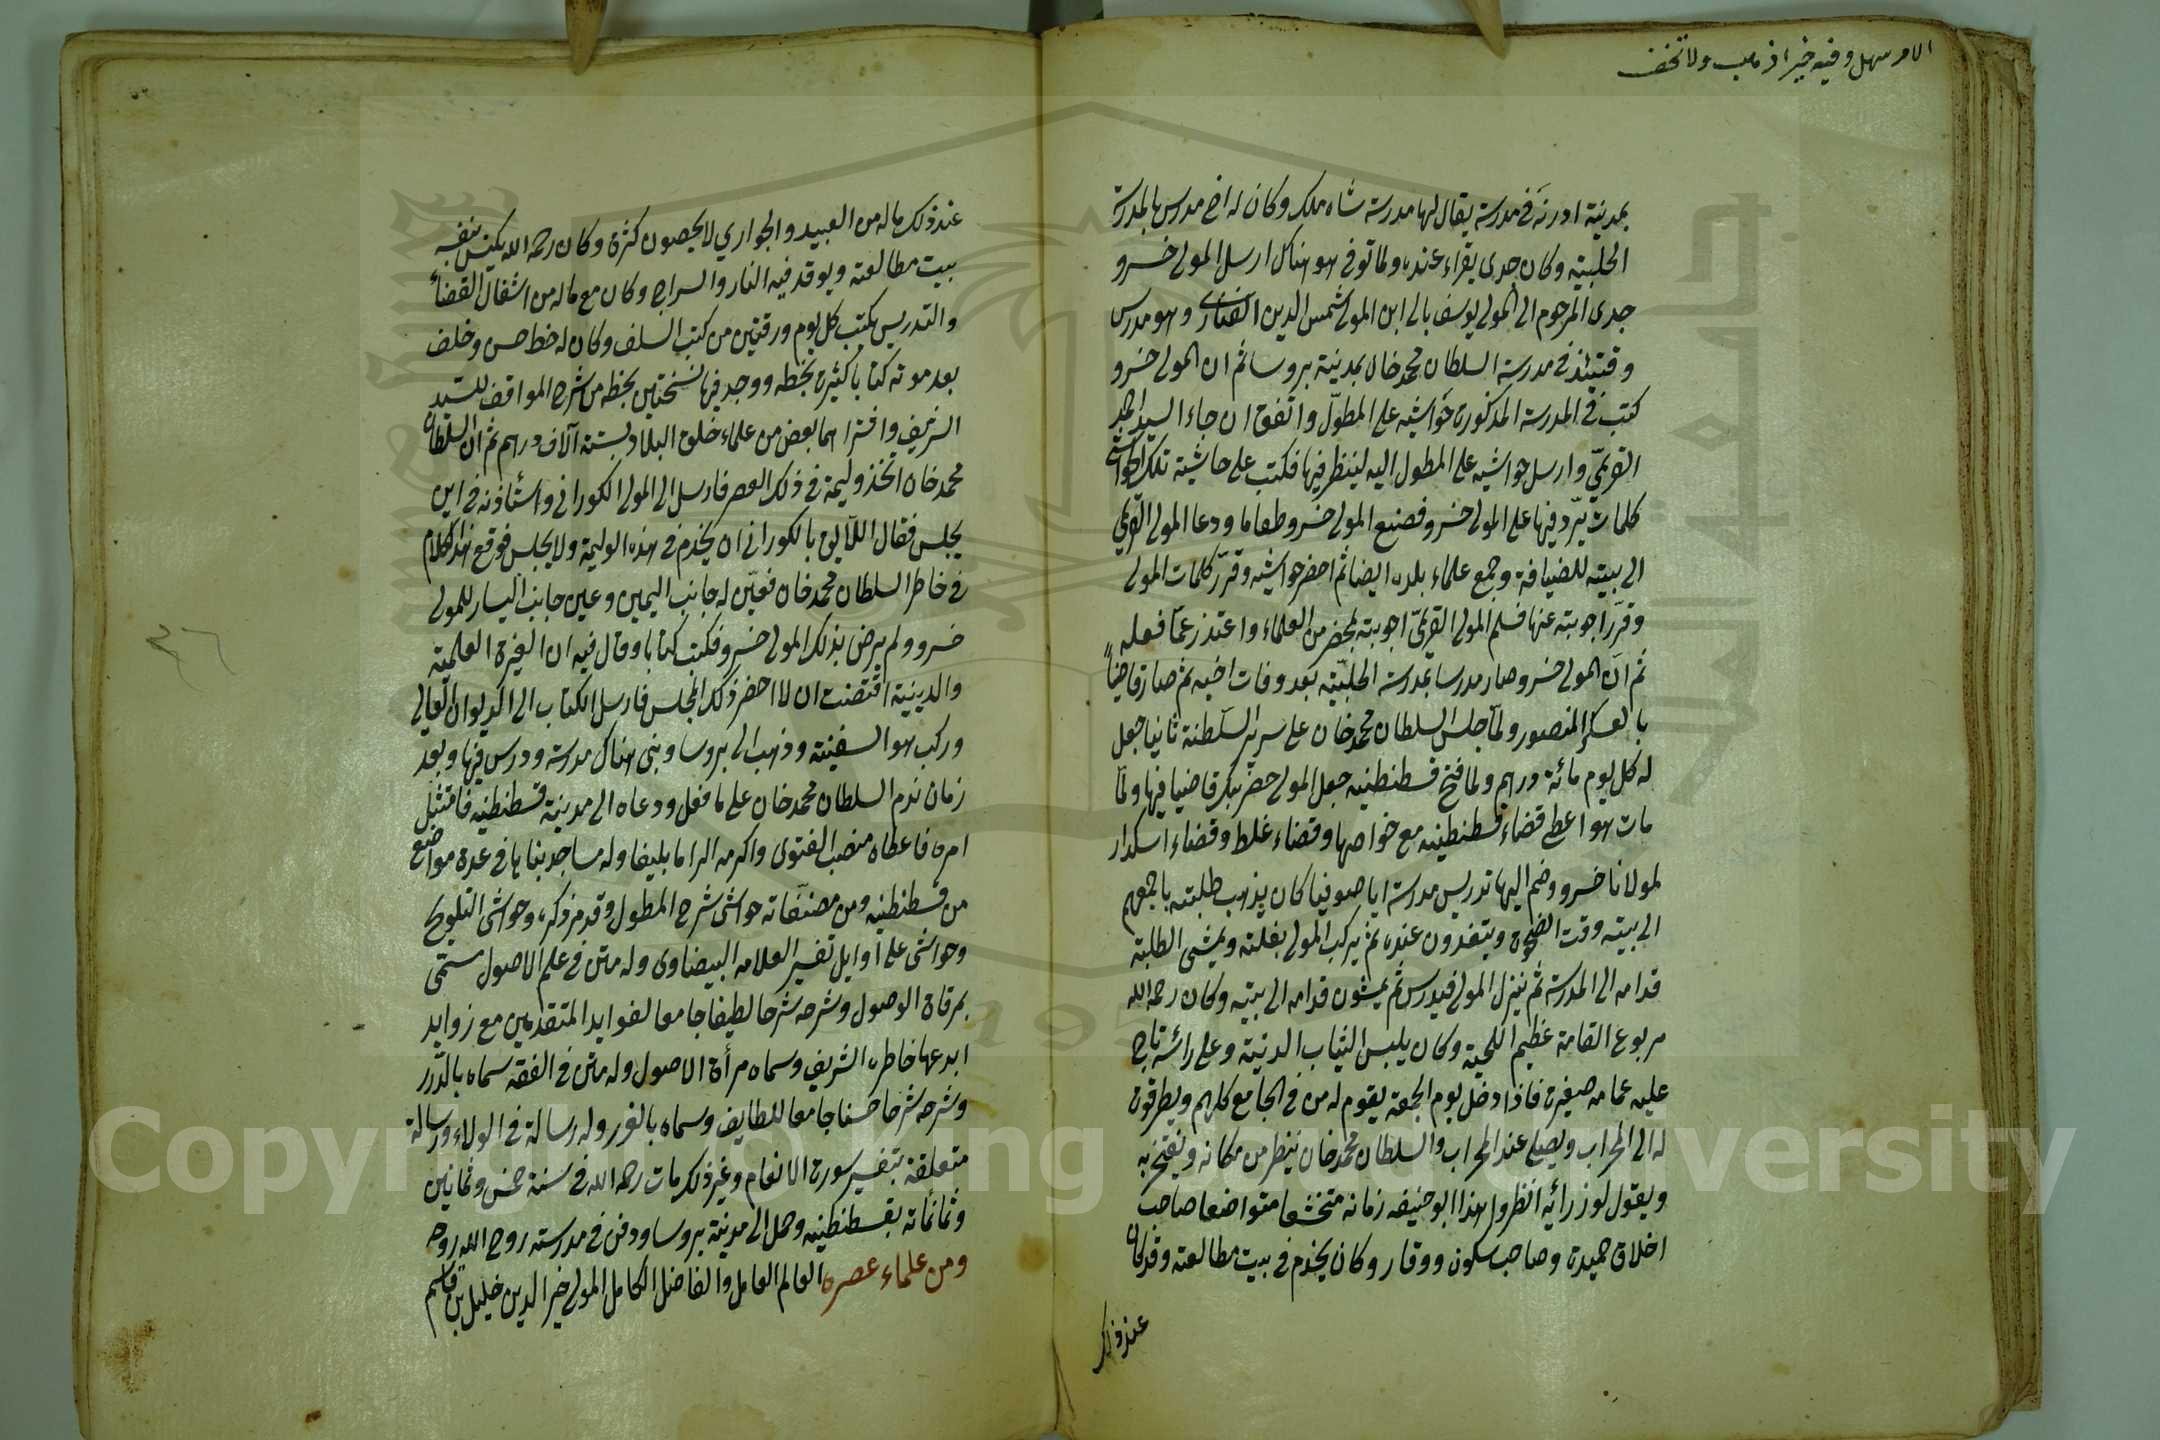 الامر سهل وفيه خير اذهب ولا تخف
بمدينة ادرنه في مدرسة يقال لها مدرسة شاه ملك وكان له اخ مدرس بالمدرسة
الحلبية وكان جدى يقراء عنده ولما توفى هو هناك ارسل المولى خسرو
جدى المرحوم الى المولى يوسف بالى ابن المولى شمس الدين الفنارى وهو مدرس
وقتيئذ في مدرسة السلطان محمد خان بمدينة بروسا ثم ان المولى خسرو
كتب في المدرسة المذكورة حواشيه على المطول واتفق ان جاء السيد احمد
القريمي وارسل حواشيه على المطول اليه لينظر فيها فكتب على حاشية تلك الحواشي
كلمات يرد فيها على المولى خسرو فصنع المولى خسرو طعاما ودعا المولى القريمي
الى بيته للضيافة وجمع علماء بلده ايضا ثم احضر حواشيه وقرر كلمات المولى
وقرر اجوبته عنها فسلم المولى القريمي اجوبته بمحضر من العلماء واعتذر عما فعله
ثم ان المولى خسرو صار مدرسا بمدرسة الحلبية بعد وفات اخيه ثم صار قاضيا
بالعسكر المنصور ولما جلس السلطان محمد خان على سرير السلطنة ثانيا جعل
له كل يوم مائة درهم ولما فتح قسطنطنيه جعل المولى خضر بك قاضيا فيها ولما
مات هو اعطى قضاء قسطنطنيه مع خواصها وقضاء غلط وقضاء اسكدار
لمولانا خسرو وضم اليها تدريس مدرسة اياصوفيا كان يذهب طلبته باجمعهم
الى بيته وقت الضحوة ويتغدون عنده ثم يركب المولى بغلته ويمشى الطلبة
قدامه الى المدرسة ثم ينزل المولى فيدرس ثم يمشون قدامه الى بيته وكان رحمه الله
مربوع القامة عظيم اللحية وكان يلبس الثياب الدنية وعلى رائسه تاج
عليه عمامه صغيرة فاذا دخل يوم الجمعة يقوم له من في الجامع كلهم ويطرقون
له الى المحراب ويصلى عند المحراب والسلطان محمد خان ينظر من مكانه ويفتخر به
ويقول لوزرائه انظروا هذا ابو حنيفه زمانه متخشعا متواضعا صاحب
اخلاق حميدة وصاحب سكون ووقار وكان يخدم في بيت مطالعته وقد كان
عند ذلك
عند ذلك ماله من العبيد والجواري لا يحصون كثرة وكان رحمه الله يكنس بنفسه
بيت مطالعته ويوقد فيه النار والسراج وكان مع ماله من اشغال القضاء
والتدريس يكتب كل يوم ورقتين من كتب السلف وكان له خط حسن وخلف
بعد موته كتابا كثيرة بخطه ووجد فيها نسختين بخطه من شرح المواقف للسيد
الشريف واشترا هما بعض من علماء خلق البلاد بستة آلاف درهم ثم ان السلطان
محمد خان اتخذ وليمة في ذلك العصر فارسل الى المولى الكوراني واستأذنه في اين
يجلس فقال اللايق بالكوراني ان يخدم في هذه الوليمة ولا يجلس فوقع هذا الكلام
في خاطر السلطان محمد خان فعين له جانب اليمين وعين جانب اليسار للمولى
خسرو ولم يرض بذلك المولى خسرو فكتب كتابا وقال فيه ان الغيرة العلمية
والدينية اقتضت ان لا احضر ذلك المجلس فارسل الكتاب الى الديوان العالي
وركب هو السفينة وذهب الى بروسا وبنى هناك مدرسة ودرس فيها وبعد
زمان ندم السلطان محمد خان على ما فعل ودعاه الى مدينة قسطنطنيه فامتثل
امره فاعطاه منصب الفتوى واكرمه اكراما بليغا وله مساجد بناها في عدة مواضع
من قسطنطنيه ومن مصنفاته حواشى شرح المطول وقد مر ذكره وحواشى التلويح
وحواشى على اوايل تفسير العلامه البيضاوى وله متن في علم الاصول مسمى
بمرقاة الوصول وشرحه شرحا لطيفا جامعا لفوايد المتقدمين مع زوايد
ابدعها خاطره الشريف وسماه مرأة الاصول وله متن في الفقه سماه بالدرر
وشرحه شرحا حسنا جامعا للطايف وسماه بالغرر وله رسالة في الولاء ورسالة
متعلقة بتفسير سورة الانعام وغير ذلك مات رحمه الله في سنة خمس وثمانين
وثمانماته بقسطنطنيه وحمل الى مدينة بروسا ودفن في مدرسته روح الله روحه
ومن علماء عصره العالم العامل والفاضل الكامل المولى خير الدين خليل بن قاسم
Copyright © King Saud University